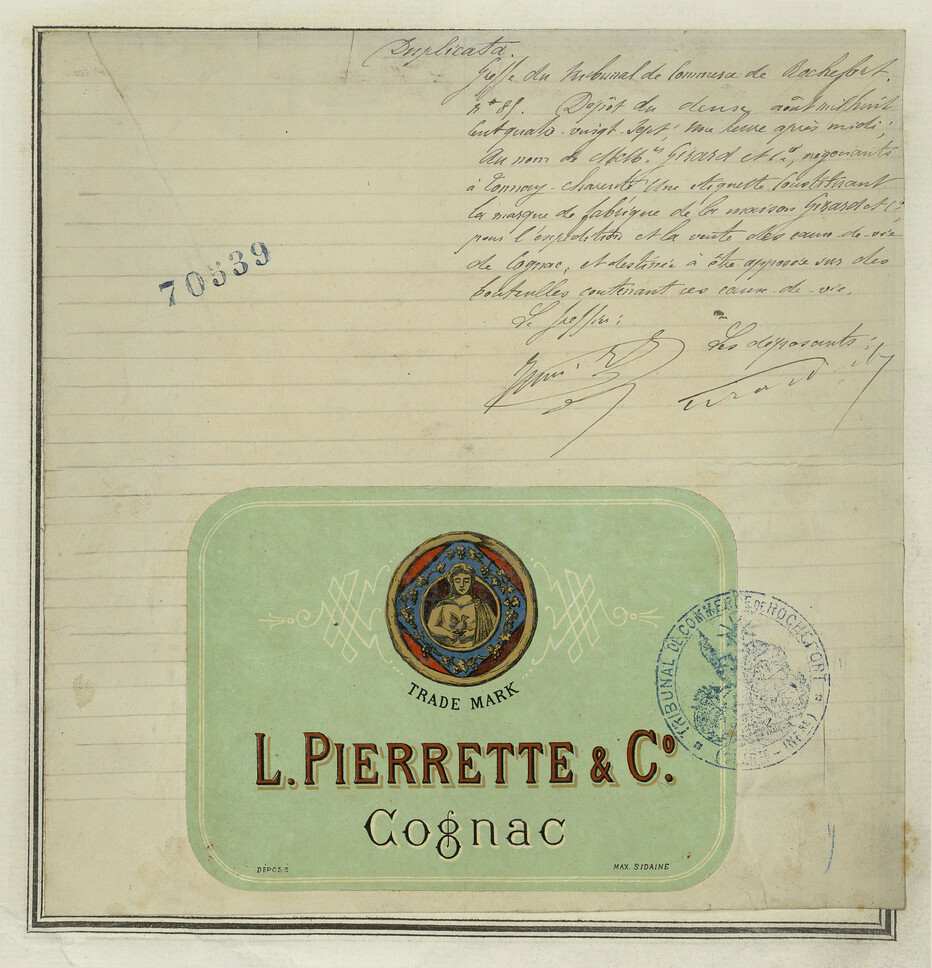 Duplicata.
Greffe du Tribunal de Commerce de Rochefort.
n° 89. Dépôt du deux août mil huit
cent quatre-vingt-sept, une heure après midi,
Au nom de MM.rs Girard et Cie, négociants
à Tonnay-Charente Une étiquette constituant
la marque de fabrique de la maison Girard et Cie,
pour l'expédition et la vente des eaux-de-vie
de Cognac, et destinée à être apposée sur des
bouteilles contenant ces eaux-de-vie.
Le Greffier:
Les déposants:
70539
TRADE MARK
L. PIERRETTE & Co.
Cognac
DÉPOSÉ
MAX. SIDAINE
TRIBUNAL DE COMMERCE DE ROCHEFORT